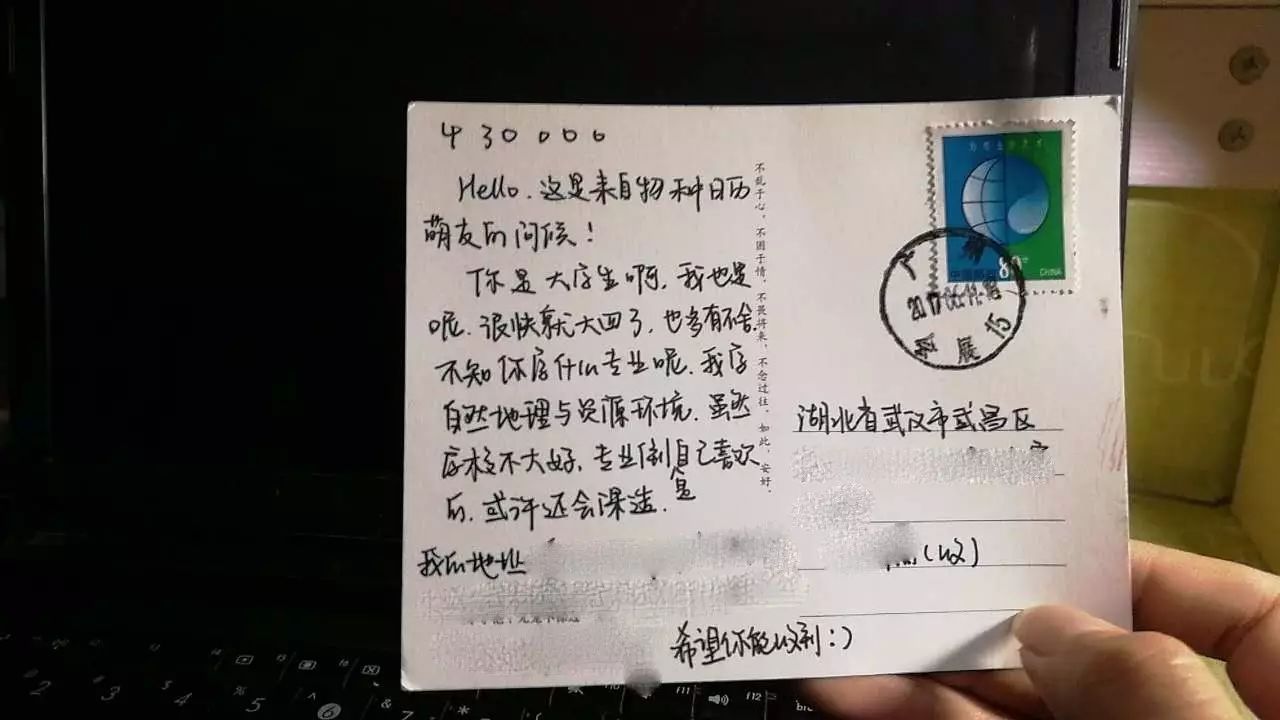 430000
Hello. 这是来自物种日历
萌友的问候!
你是大学生啊, 我也是
呢. 很快就大四了, 也多有不舍.
不知你学什么专业呢. 我学
自然地理与资源环境. 虽然
学校不大好, 专业倒是自己喜欢
的, 或许还会深造.
我的地址
希望你能收到:)
不乱于心，不困于情，不畏将来，不念过往，如此，安好。
中国邮政 80分
CHINA
广
2017.06.11.18
发展 15
湖北省武汉市武昌区
(收)
2 3 4 5 6 7
f11 f12